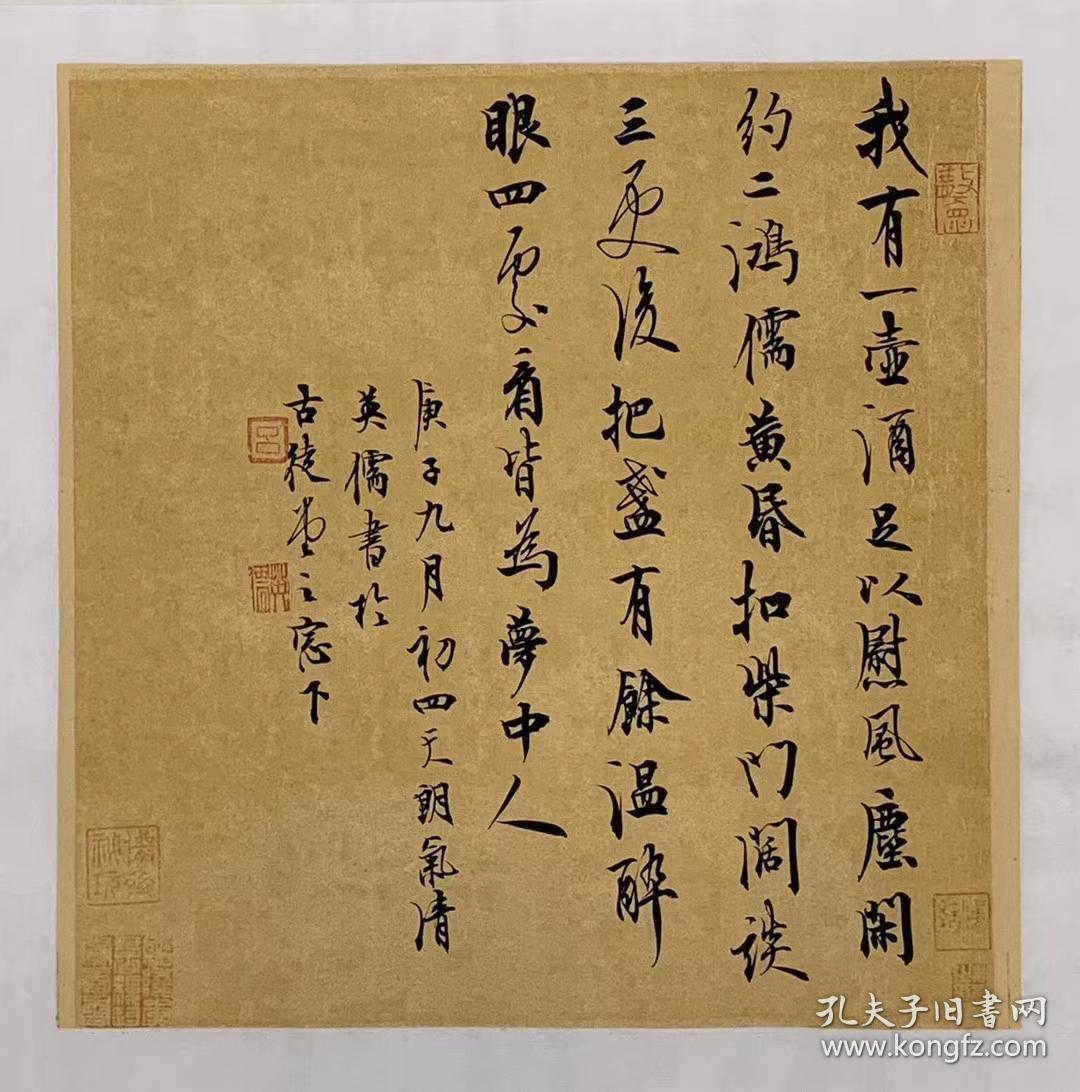 我有一壺酒足以慰風塵閑
約二鴻儒黄昏扣柴門闊談
三更後把盞有餘温醉
眼四處看皆為夢中人
庚子九月初四天朗氣清
英儒書於
古
之窓下
呂
英儒
孔夫子旧书网
www.kongfz.com